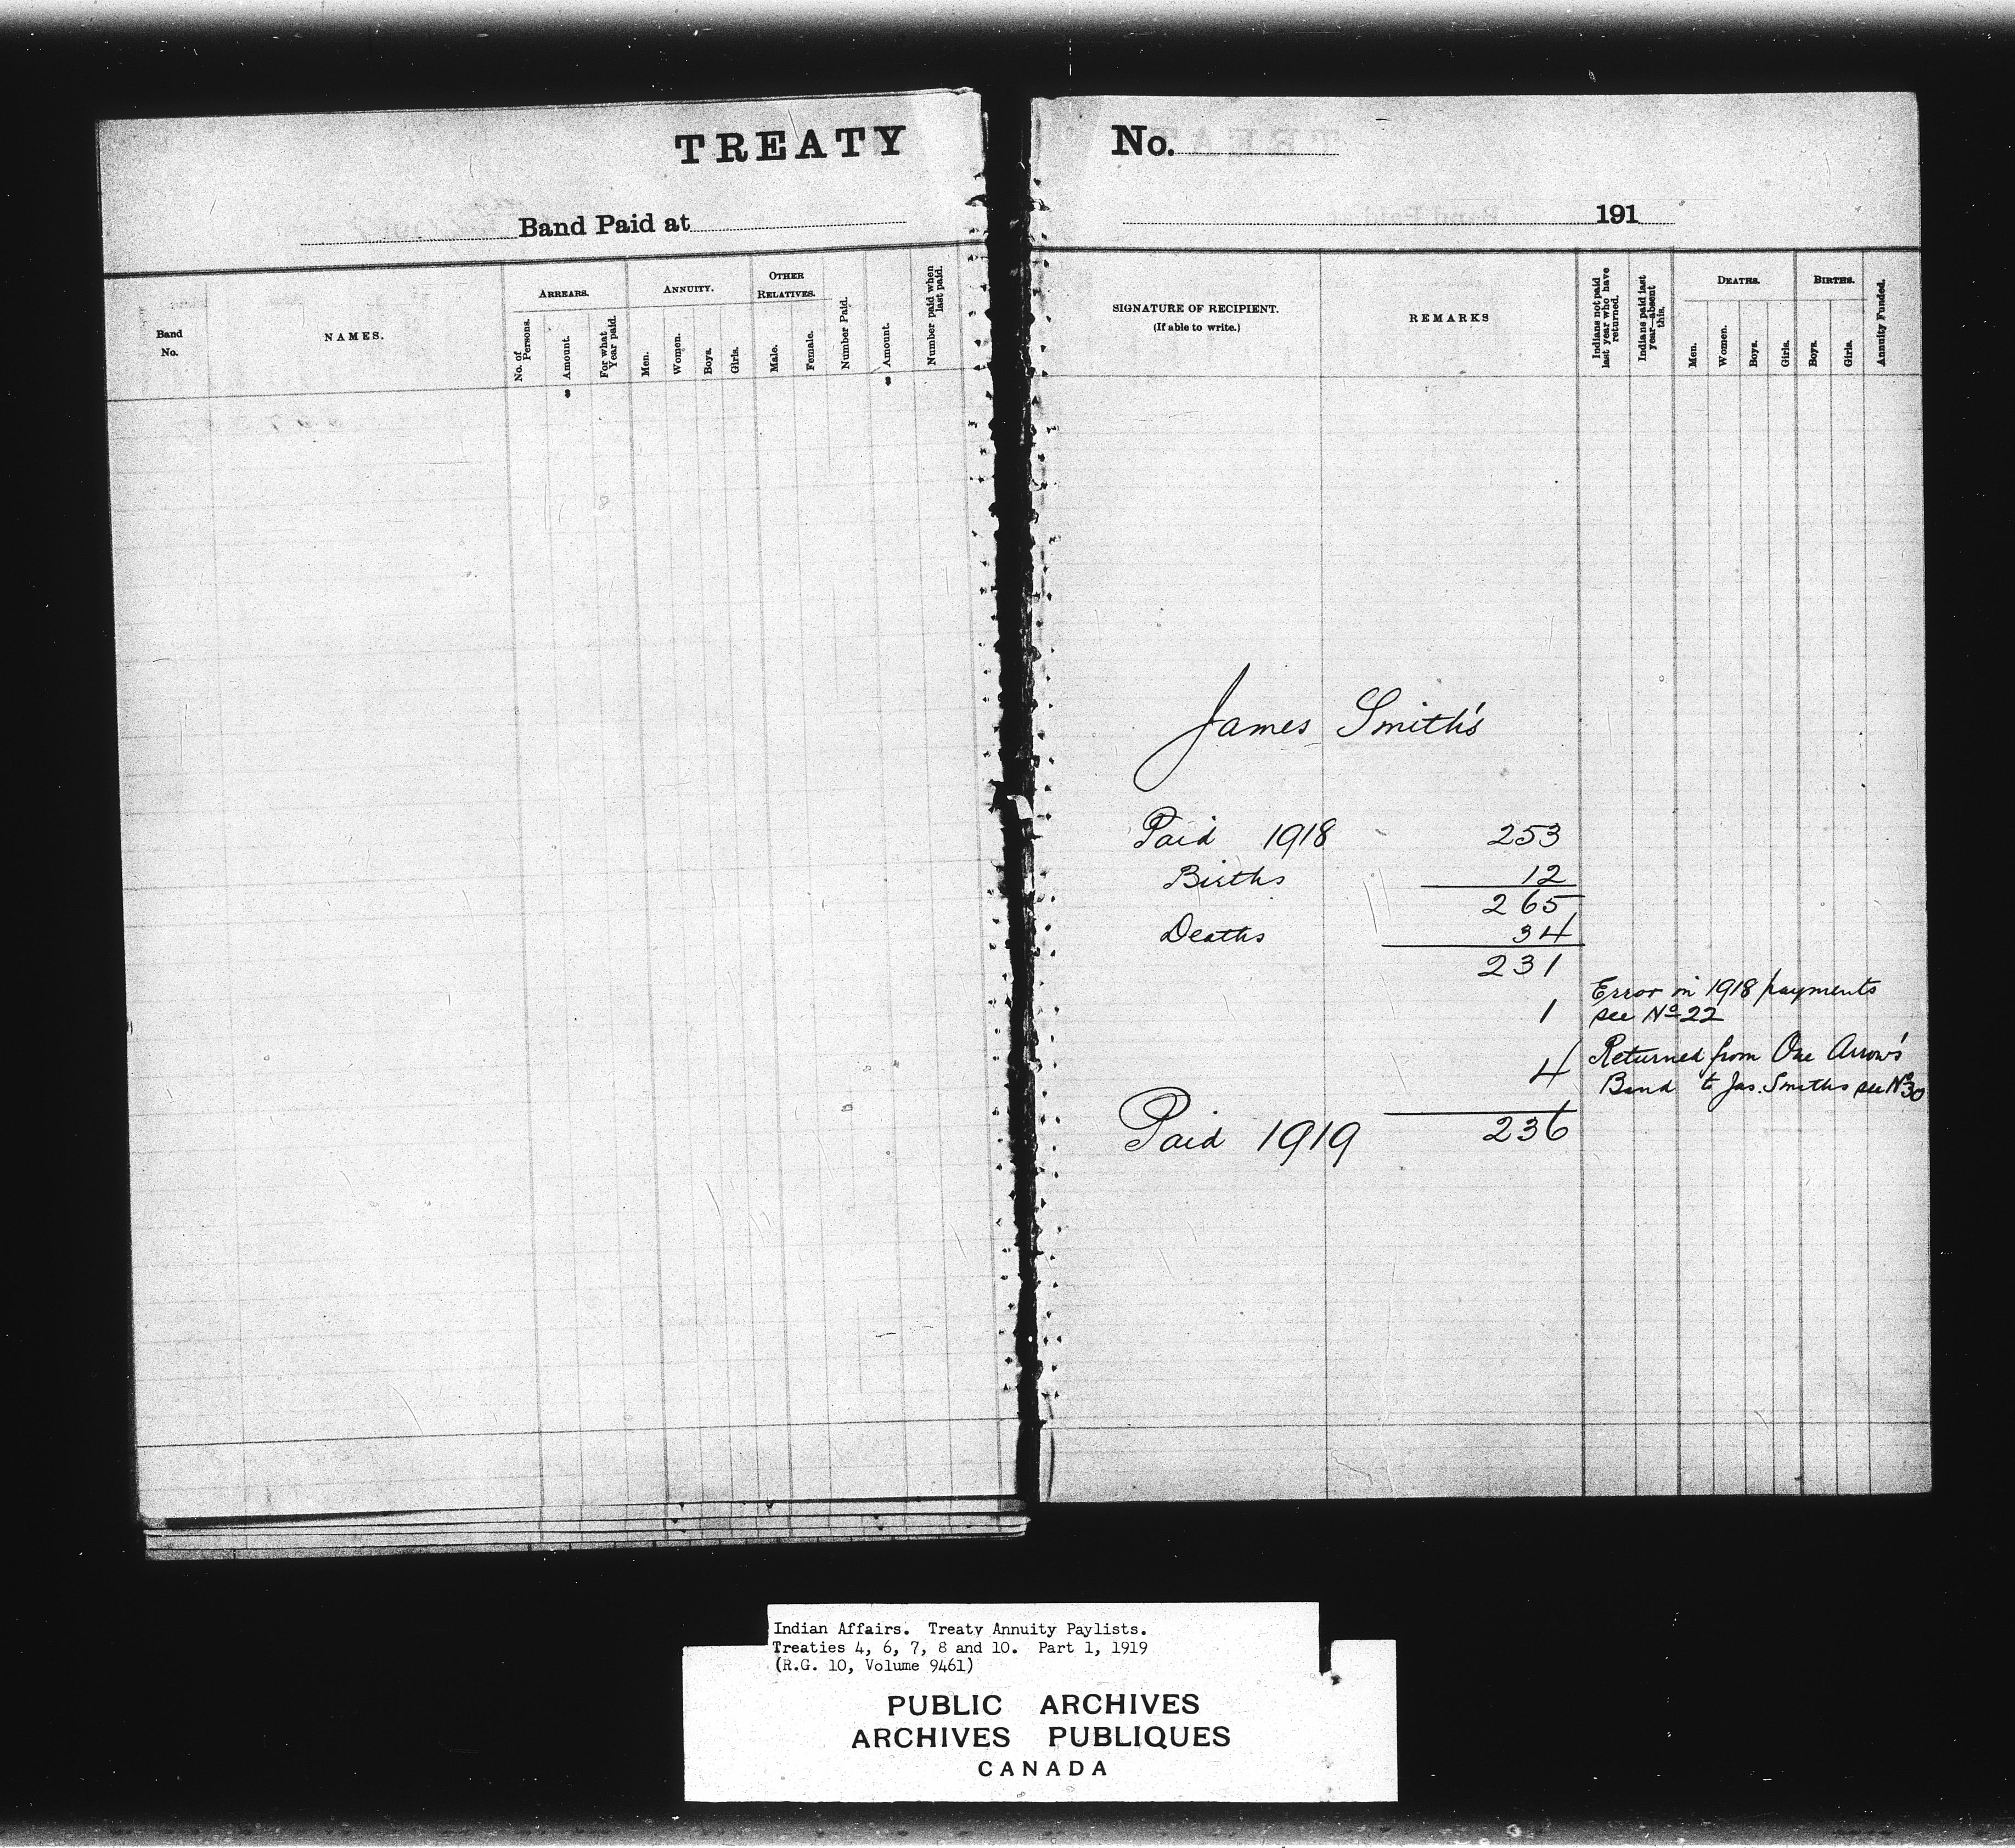 TREATY No.
Band Paid at 191
Band No.
NAMES.
ARREARS.
No. of Persons.
Amount.
For what Year paid.
ANNUITY.
Men.
Women.
Boys.
Girls.
OTHER RELATIVES.
Male.
Female.
Number Paid.
Amount.
Number paid when last paid.
SIGNATURE OF RECIPIENT.
(If able to write.)
REMARKS
Indians not paid last year who have returned.
Indians paid last year—absent this.
DEATHS.
Men.
Women.
Boys.
Girls.
BIRTHS.
Boys.
Girls.
Annuity Funded.
James Smith's
Paid 1918 253
Births 12
265
Deaths 34
231
1 Error in 1918 payments
see No 22
4 Returned from One Arrow's
Band to Jas. Smiths see No 30
Paid 1919 236
Indian Affairs. Treaty Annuity Paylists.
Treaties 4, 6, 7, 8 and 10. Part 1, 1919
(R.G. 10, Volume 9461)
PUBLIC ARCHIVES
ARCHIVES PUBLIQUES
CANADA